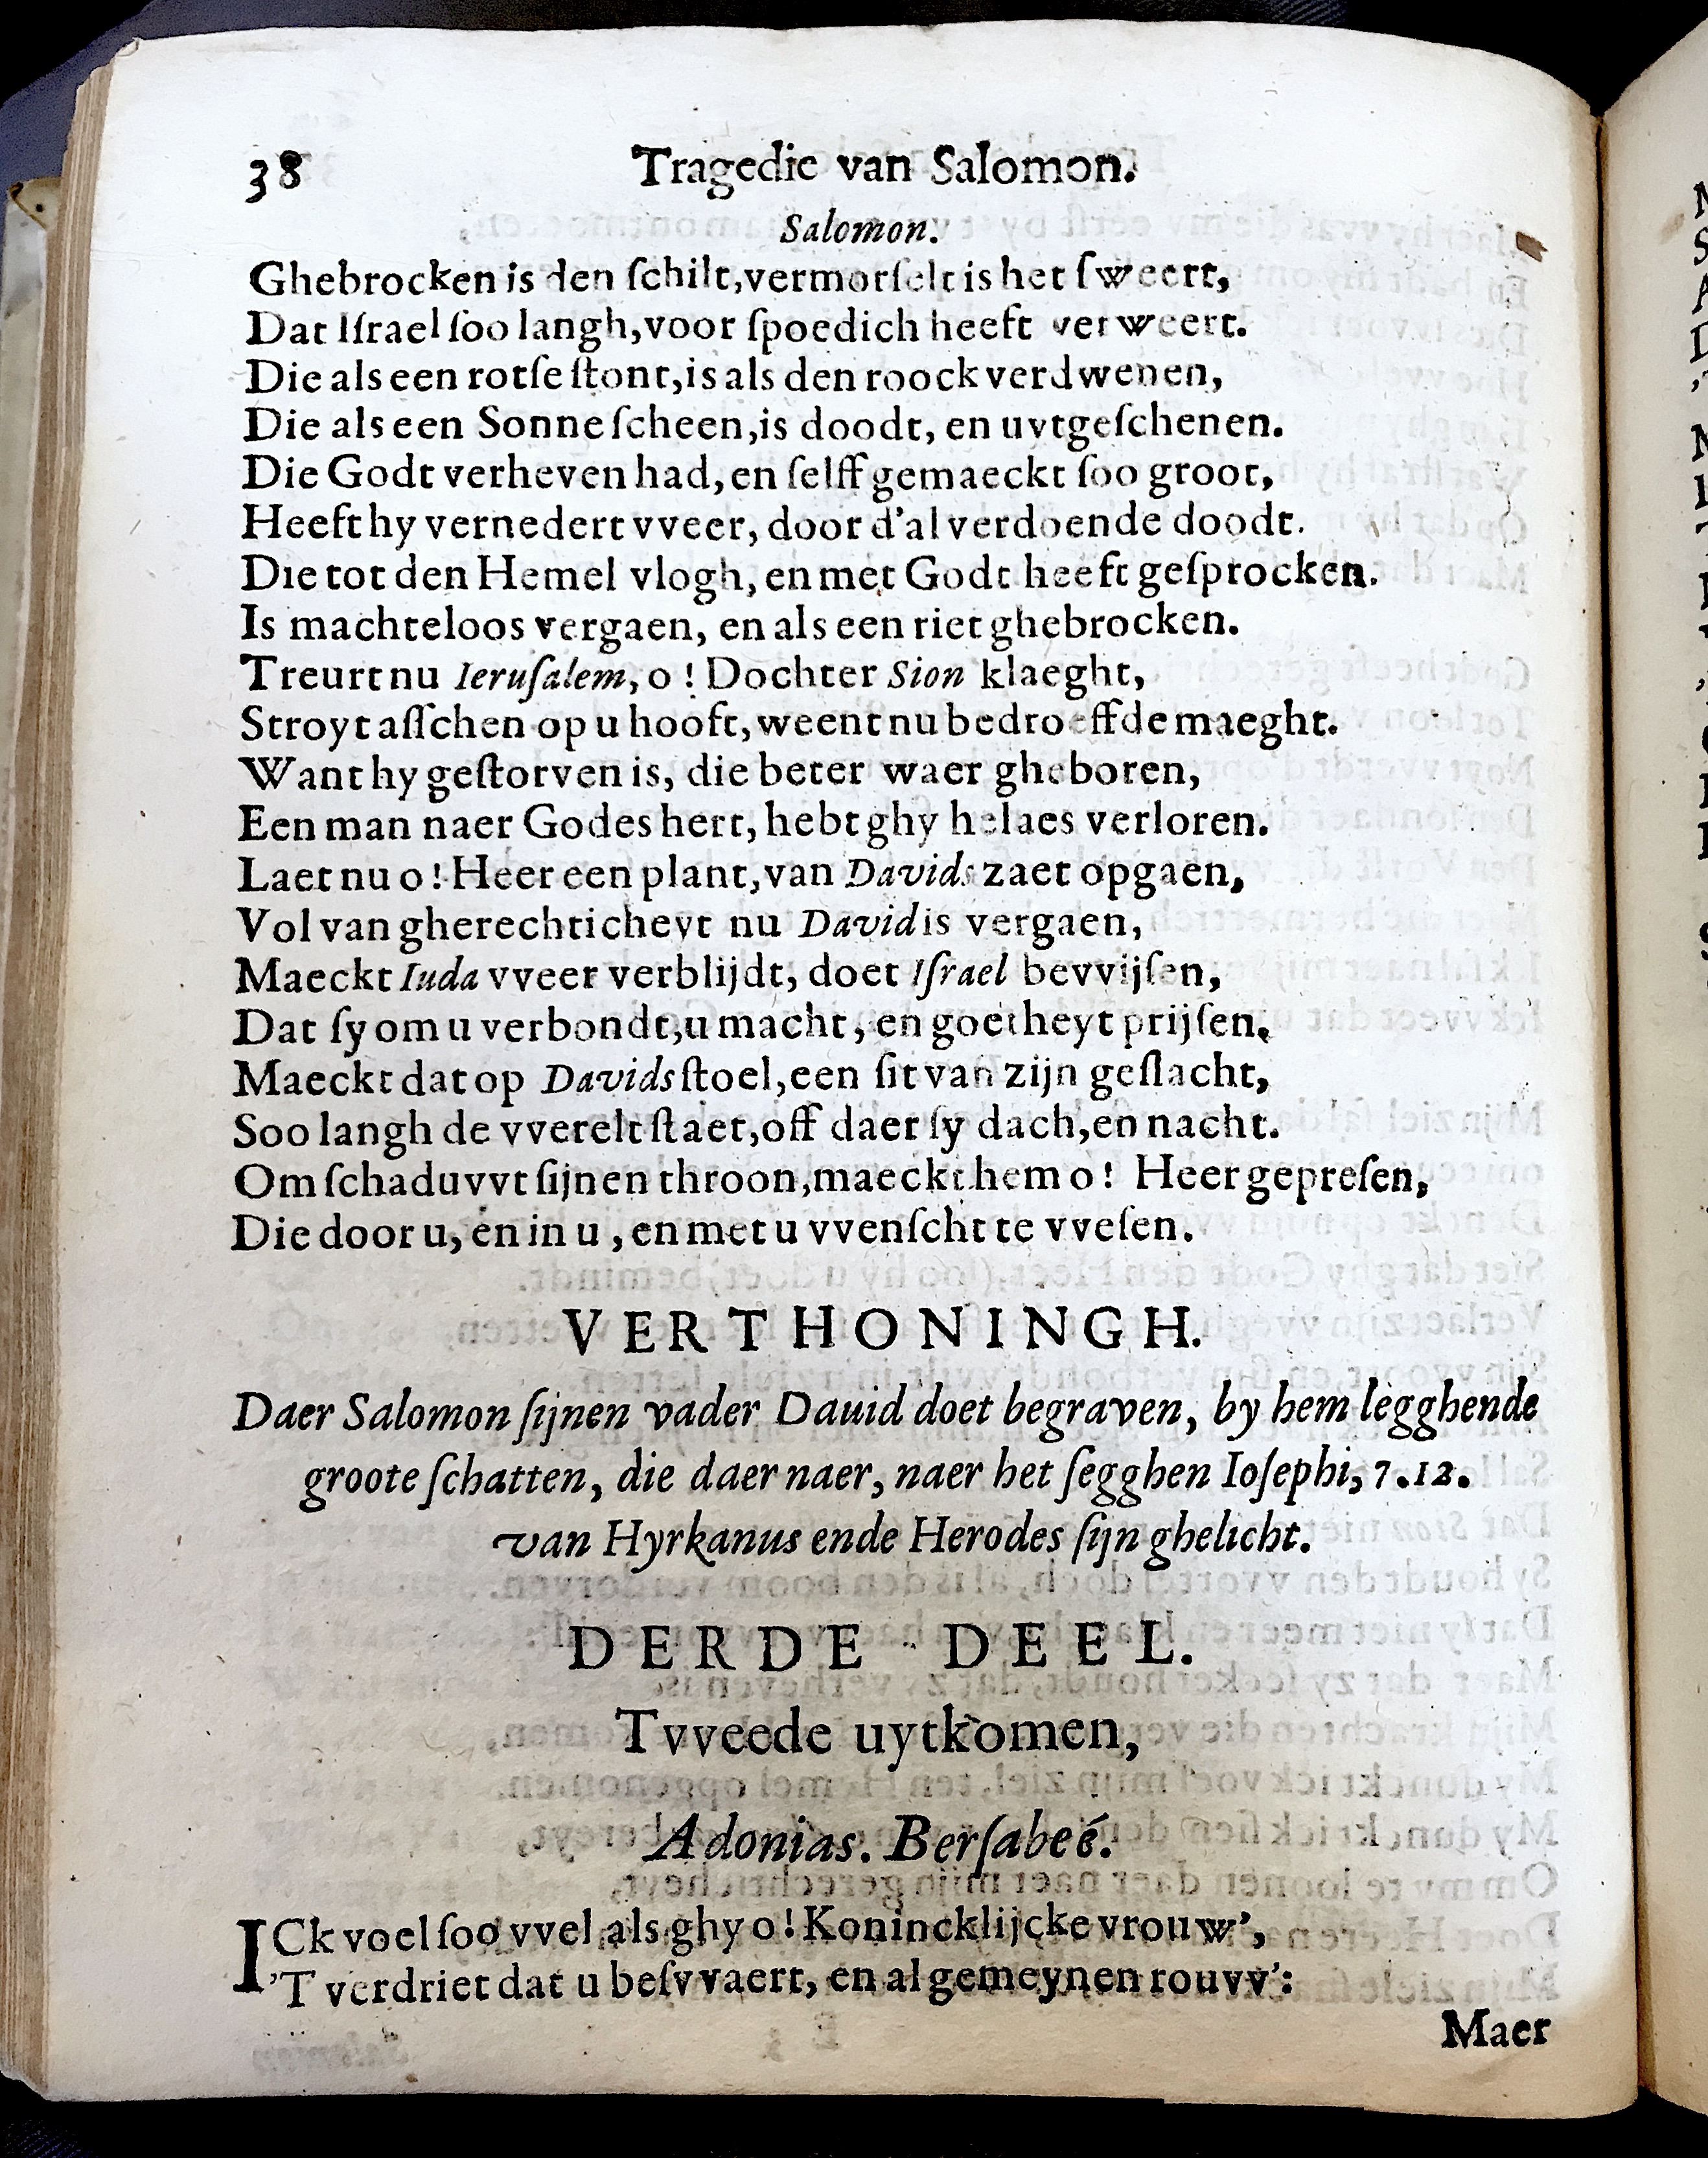 38 Tragedie van Salomon.
Salomon.
Ghebrocken is den ſchilt, vermorſelt is het ſweert,
Dat Iſrael ſoo langh, voor ſpoedich heeft verweert.
Die als een rotſe ſtont, is als den roock verdwenen,
Die als een Sonne ſcheen, is doodt, en uvtgeſchenen.
Die Godt verheven had, en ſelff gemaeckt ſoo groot,
Heeft hy vernedert vveer, door d'al verdoende doodt.
Die tot den Hemel vlogh, en met Godt heeft geſprocken.
Is machteloos vergaen, en als een riet ghebrocken.
Treurt nu Ieruſalem, o! Dochter Sion klaeght,
Stroyt aſſchen op u hooft, weent nu bedroeffde maeght.
Want hy geſtorven is, die beter waer gheboren,
Een man naer Godes hert, hebt ghy helaes verloren.
Laet nu o! Heer een plant, van Davids zaet opgaen,
Vol van gherechticheyt nu David is vergaen,
Maeckt Iuda vveer verblijdt, doet Iſrael bevvijſen,
Dat ſy om u verbondt, u macht, en goetheyt prijſen,
Maeckt dat op Davids ſtoel, een ſit van zijn geſlacht,
Soo langh de vverelt ſtaet, off daer ſy dach, en nacht.
Om ſchaduvvt ſijnen throon, maeckt hem o! Heer gepreſen,
Die door u, en in u, en met u vvenſcht te vveſen.
VERTHONINGH.
Daer Salomon ſijnen vader Dauid doet begraven, by hem legghende
groote ſchatten, die daer naer, naer het ſegghen Ioſephi, 7.12.
van Hyrkanus ende Herodes ſijn ghelicht.
DERDE DEEL.
Tvveede uytkomen,
Adonias. Berſabeé.
ICk voel ſoo vvel als ghy o! Konincklijcke vrouw',
'T verdriet dat u beſvvaert, en al gemeynen rouvv':
Maer